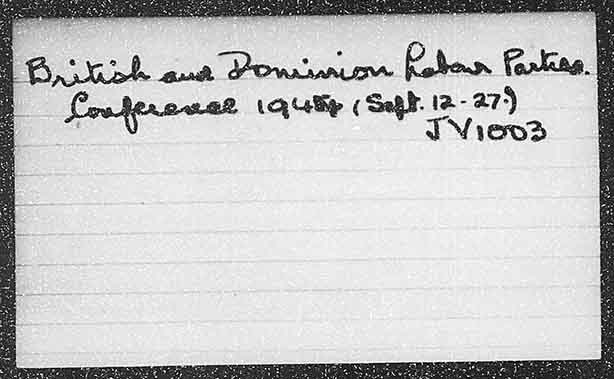 British and Dominion Labour Parties.
Conference 1944 (Sept. 12-27.)
JV1003